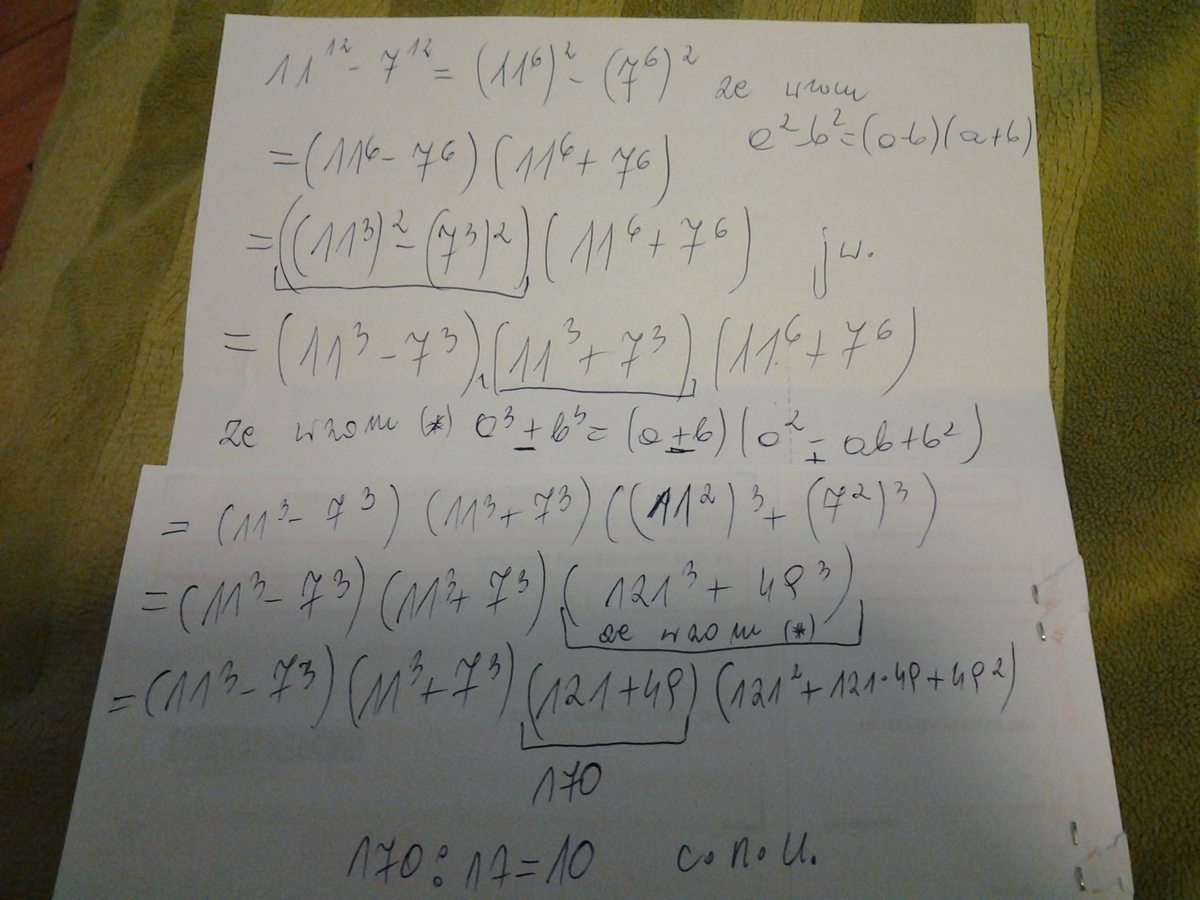 11¹² - 7¹² = (11⁶)² - (7⁶)² ze wzoru
a² - b² = (a-b)(a+b)
= (11⁶ - 7⁶) (11⁶ + 7⁶)
= ((11³)² - (7³)²) (11⁶ + 7⁶) jw.
= (11³ - 7³) · (11³ + 7³) · (11⁶ + 7⁶)
ze wzoru (*) a³ ± b³ = (a ± b) (a² ∓ ab + b²)
= (11³ - 7³) (11³ + 7³) ((11²)³ + (7²)³)
= (11³ - 7³) (11³ + 7³) (121³ + 49³)
ze wzoru (*)
= (11³ - 7³) (11³ + 7³) (121 + 49) (121² + 121·49 + 49²)
170
170 : 17 = 10 c.n.u.